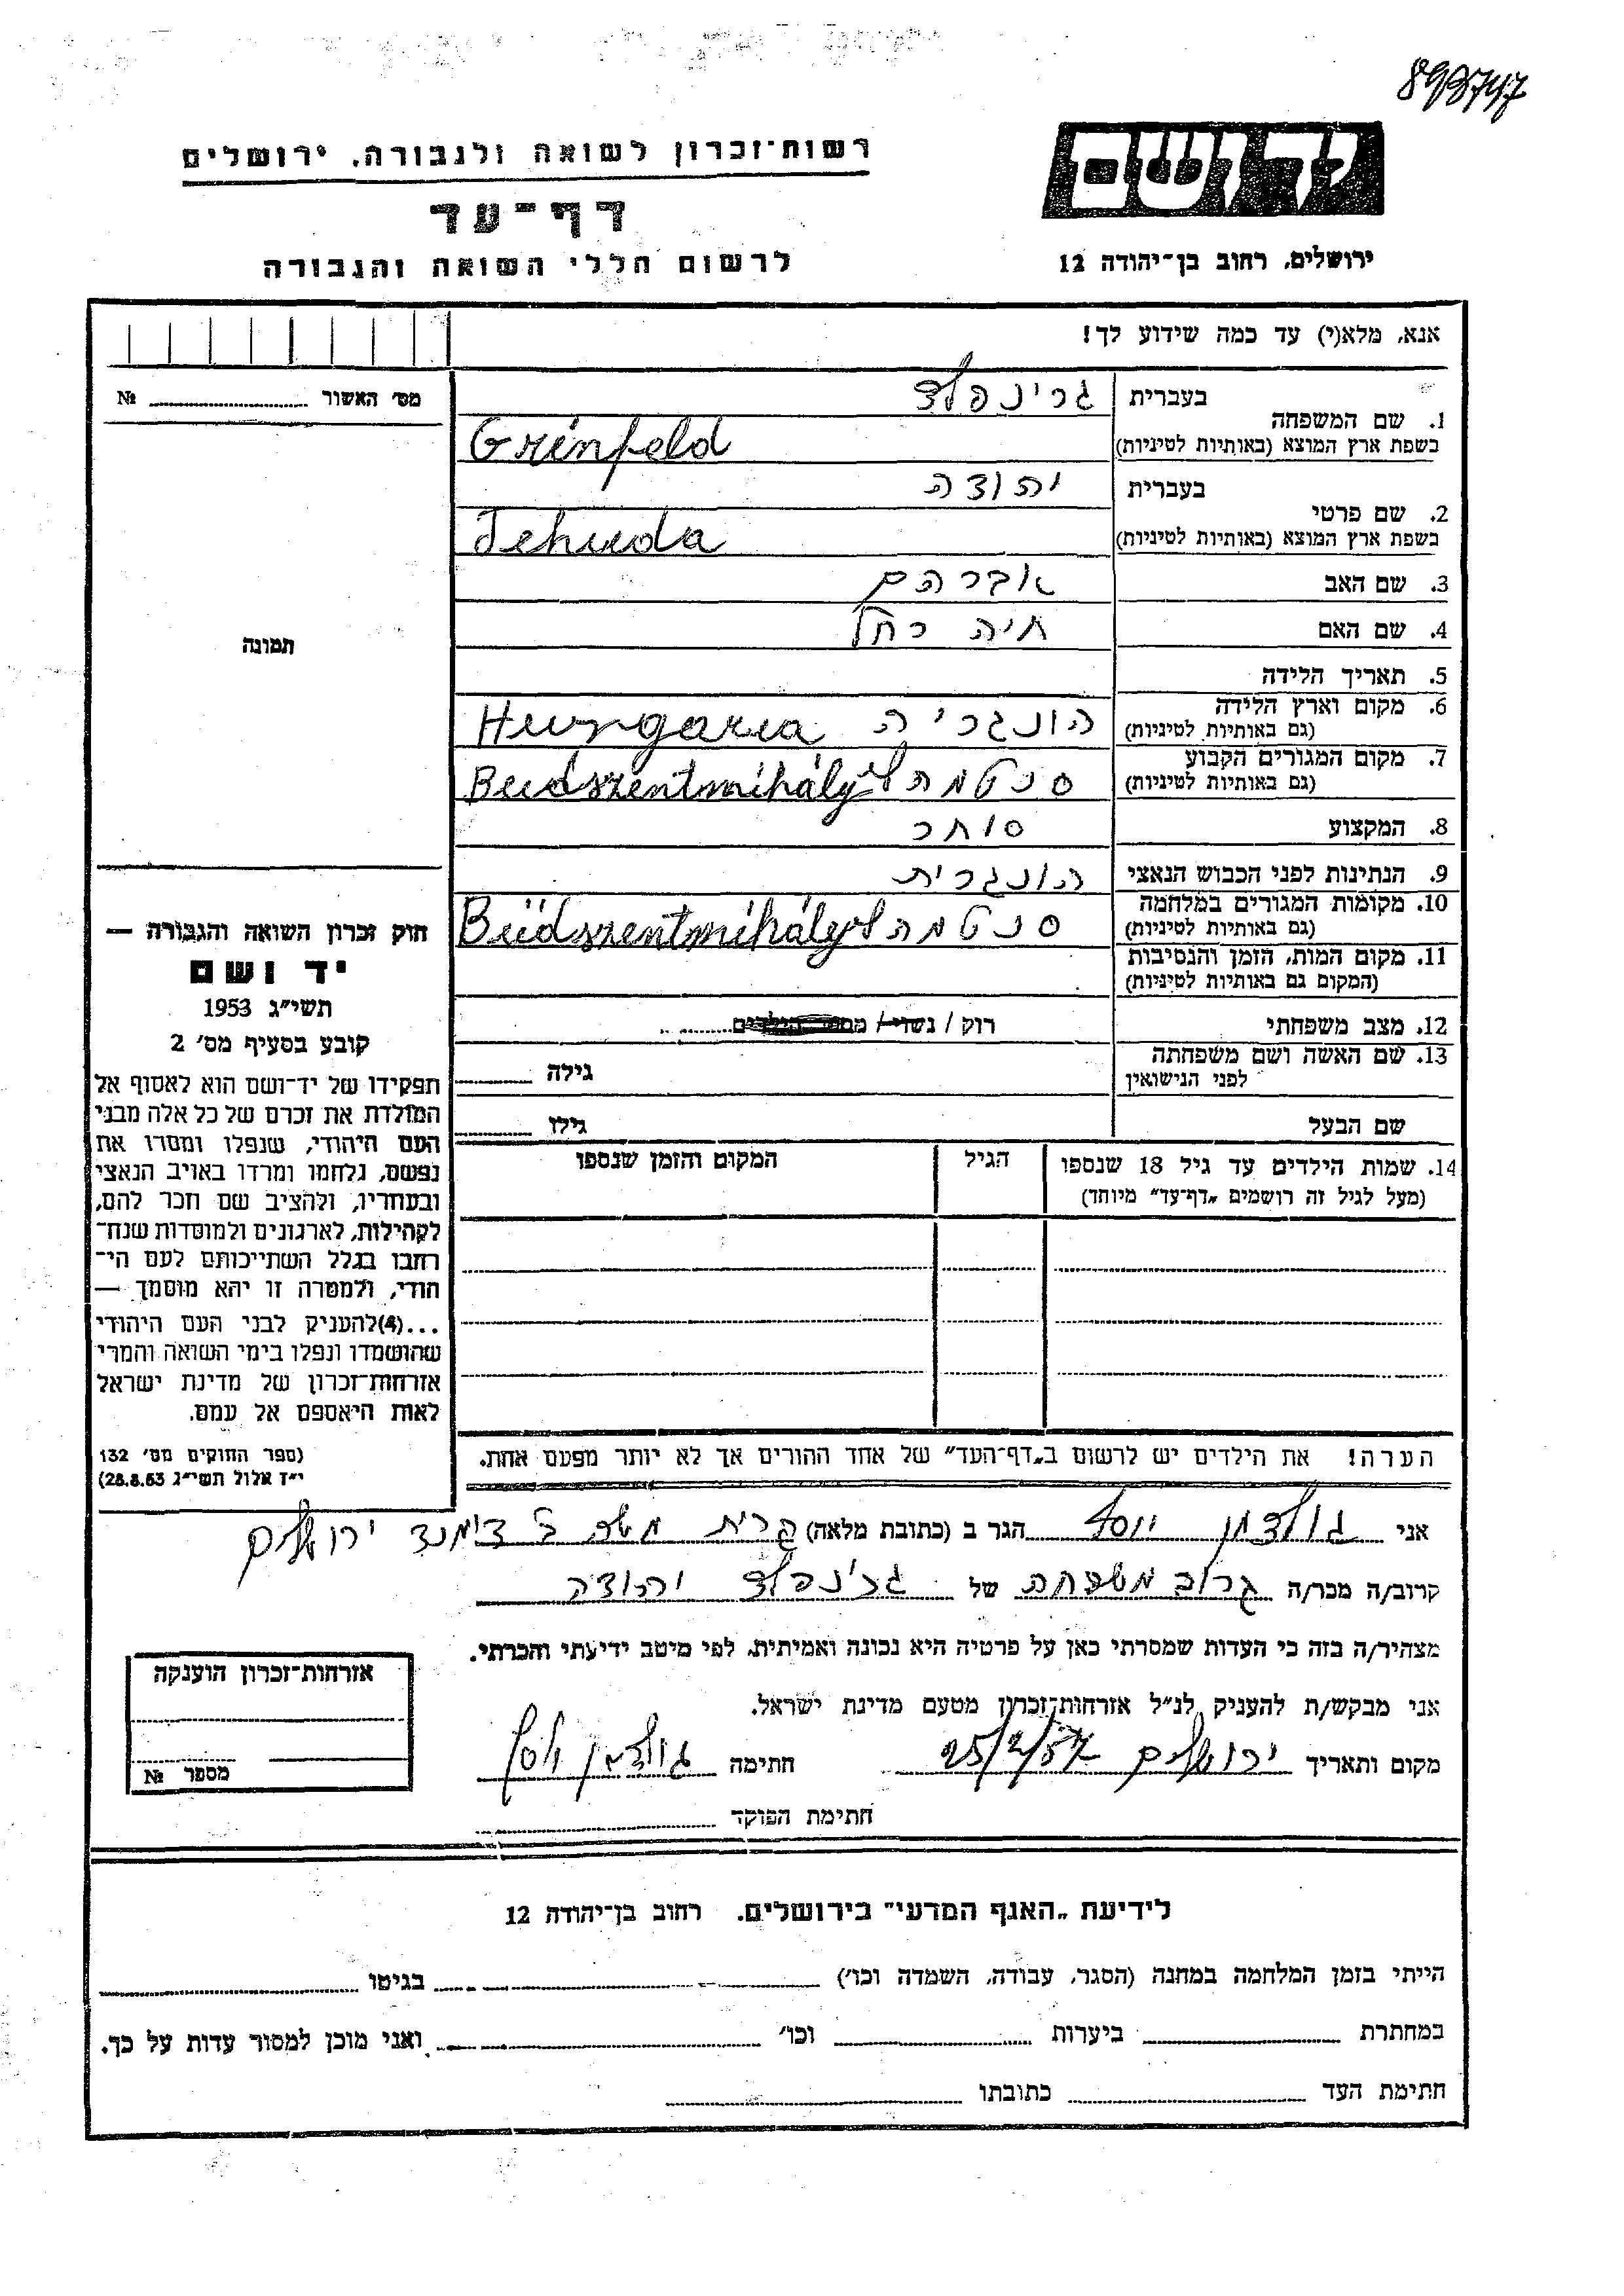 893747
יד ושם
ירושלים, רחוב בן־יהודה 12
רשות־זכרון לשואה ולגבורה, ירושלים
דף־עד
לרשום חללי השואה והגבורה
אנא, מלא(י) עד כמה שידוע לך!
מס׳ האשור № 
1. שם המשפחה בעברית גרינפלד
בשפת ארץ המוצא (באותיות לטיניות) Grinfeld
2. שם פרטי בעברית יהודה
בשפת ארץ המוצא (באותיות לטיניות) Jehuda
3. שם האב אברהם
4. שם האם חיה רחל
5. תאריך הלידה
6. מקום וארץ הלידה הונגריה Hungaria
(גם באותיות לטיניות)
7. מקום המגורים הקבוע סנטמהלי Büdszentmihály
(גם באותיות לטיניות)
8. המקצוע סוחר
9. הנתינות לפני הכבוש הנאצי הונגרית
10. מקומות המגורים במלחמה סנטמהלי Büdszentmihály
(גם באותיות לטיניות)
11. מקום המות, הזמן והנסיבות
(המקום גם באותיות לטיניות)
12. מצב משפחתי רוק / נשוי / מספר הילדים
13. שם האשה ושם משפחתה גילה
לפני הנישואין
שם הבעל גילו
14. שמות הילדים עד גיל 18 שנספו הגיל המקום והזמן שנספו
(מעל לגיל זה רושמים „דף־עד״ מיוחד)
הערה! את הילדים יש לרשום ב„דף־העד״ של אחד ההורים אך לא יותר מפעם אחת.
תמונה
חוק זכרון השואה והגבורה —
יד ושם
תשי״ג 1953
קובע בסעיף מס׳ 2
תפקידו של יד־ושם הוא לאסוף אל
המולדת את זכרם של כל אלה מבני
העם היהודי, שנפלו ומסרו את
נפשם, נלחמו ומרדו באויב הנאצי
ובעוזריו, ולהציב שם וזכר להם,
לקהילות, לארגונים ולמוסדות שנח־
רבו בגלל השתייכותם לעם הי־
הודי, ולמטרה זו יהא מוסמך —
...(4)להעניק לבני העם היהודי
שהושמדו ונפלו בימי השואה והמרי
אזרחות־זכרון של מדינת ישראל
לאות היאספם אל עמם.
(ספר החוקים מס׳ 132
י״ז אלול תשי״ג 28.8.53)
אני גולדמן יוסף הגר ב (כתובת מלאה) קרית מטה ירושלים
קרוב/ה מכר/ה קרוב משפחה של גרינפלד יהודה
מצהיר/ה בזה כי העדות שמסרתי כאן על פרטיה היא נכונה ואמיתית, לפי מיטב ידיעתי והכרתי.
אני מבקש/ת להעניק לנ״ל אזרחות־זכרון מטעם מדינת ישראל.
מקום ותאריך ירושלים 25/2/57 חתימה גולדמן יוסף
חתימת הפוקד
אזרחות־זכרון הוענקה
מספר №
לידיעת „האגף המדעי״ בירושלים, רחוב בן־יהודה 12
הייתי בזמן המלחמה במחנה (הסגר, עבודה, השמדה וכו׳) בגיטו
במחתרת ביערות וכו׳ ואני מוכן למסור עדות על כך.
חתימת העד כתובתו